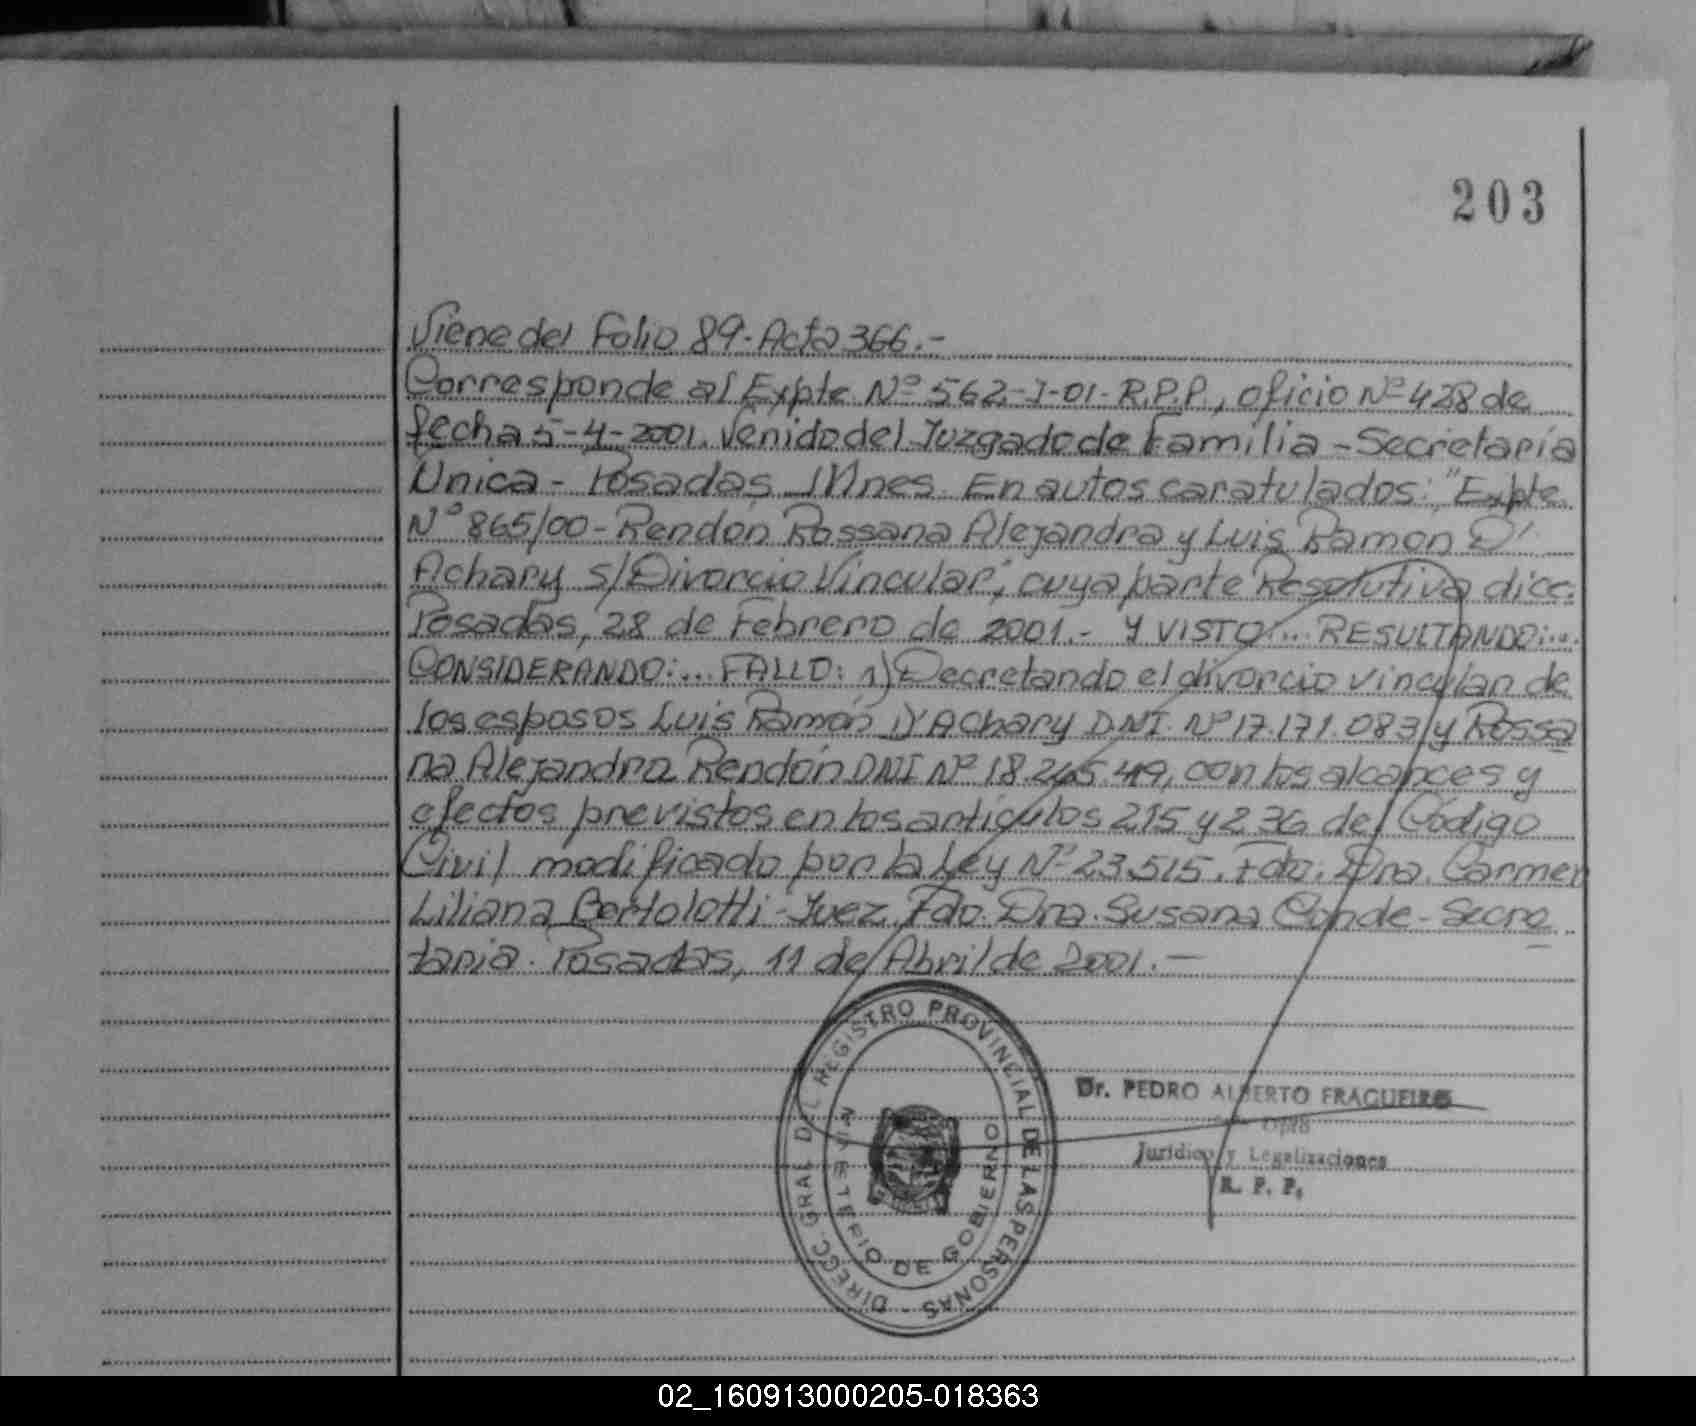 203
Viene del Folio 89-Acta 366.-
Corresponde al Expte Nº 562-J-01-R.P.P., oficio Nº 428 de
fecha 5-4-2001. Venido del Juzgado de Familia - Secretaría
Unica - Posadas, Mnes. En autos caratulados: "Expte
Nº 865/00 - Rendón Rossana Alejandra y Luis Ramon D'
Achary s/Divorcio Vincular", cuya parte Resolutiva dice:
Posadas, 28 de Febrero de 2001.- Y VISTO:... RESULTANDO:...
CONSIDERANDO:... FALLO: 1) Decretando el divorcio vincular de
los esposos Luis Ramón D'Achary DNI. Nº 17.171.083 y Rossa
na Alejandra Rendón DNI Nº con los alcances y
efectos previstos en los artículos 215 y 236 del Código
Civil modificado por la Ley Nº 23.515. Fdo. Dra. Carmen
Liliana Bertolotti - Juez. Fdo. Dra. Susana Conde - Secre
taria. Posadas, 11 de Abril de 2001.-
DIRECC. GRAL. DEL REGISTRO PROVINCIAL DE LAS PERSONAS -
MINISTERIO DE GOBIERNO
Dr. PEDRO ALBERTO FRAGUEIRO
Dpto
Jurídico y Legalizaciones
R. P. P.
02_160913000205-018363